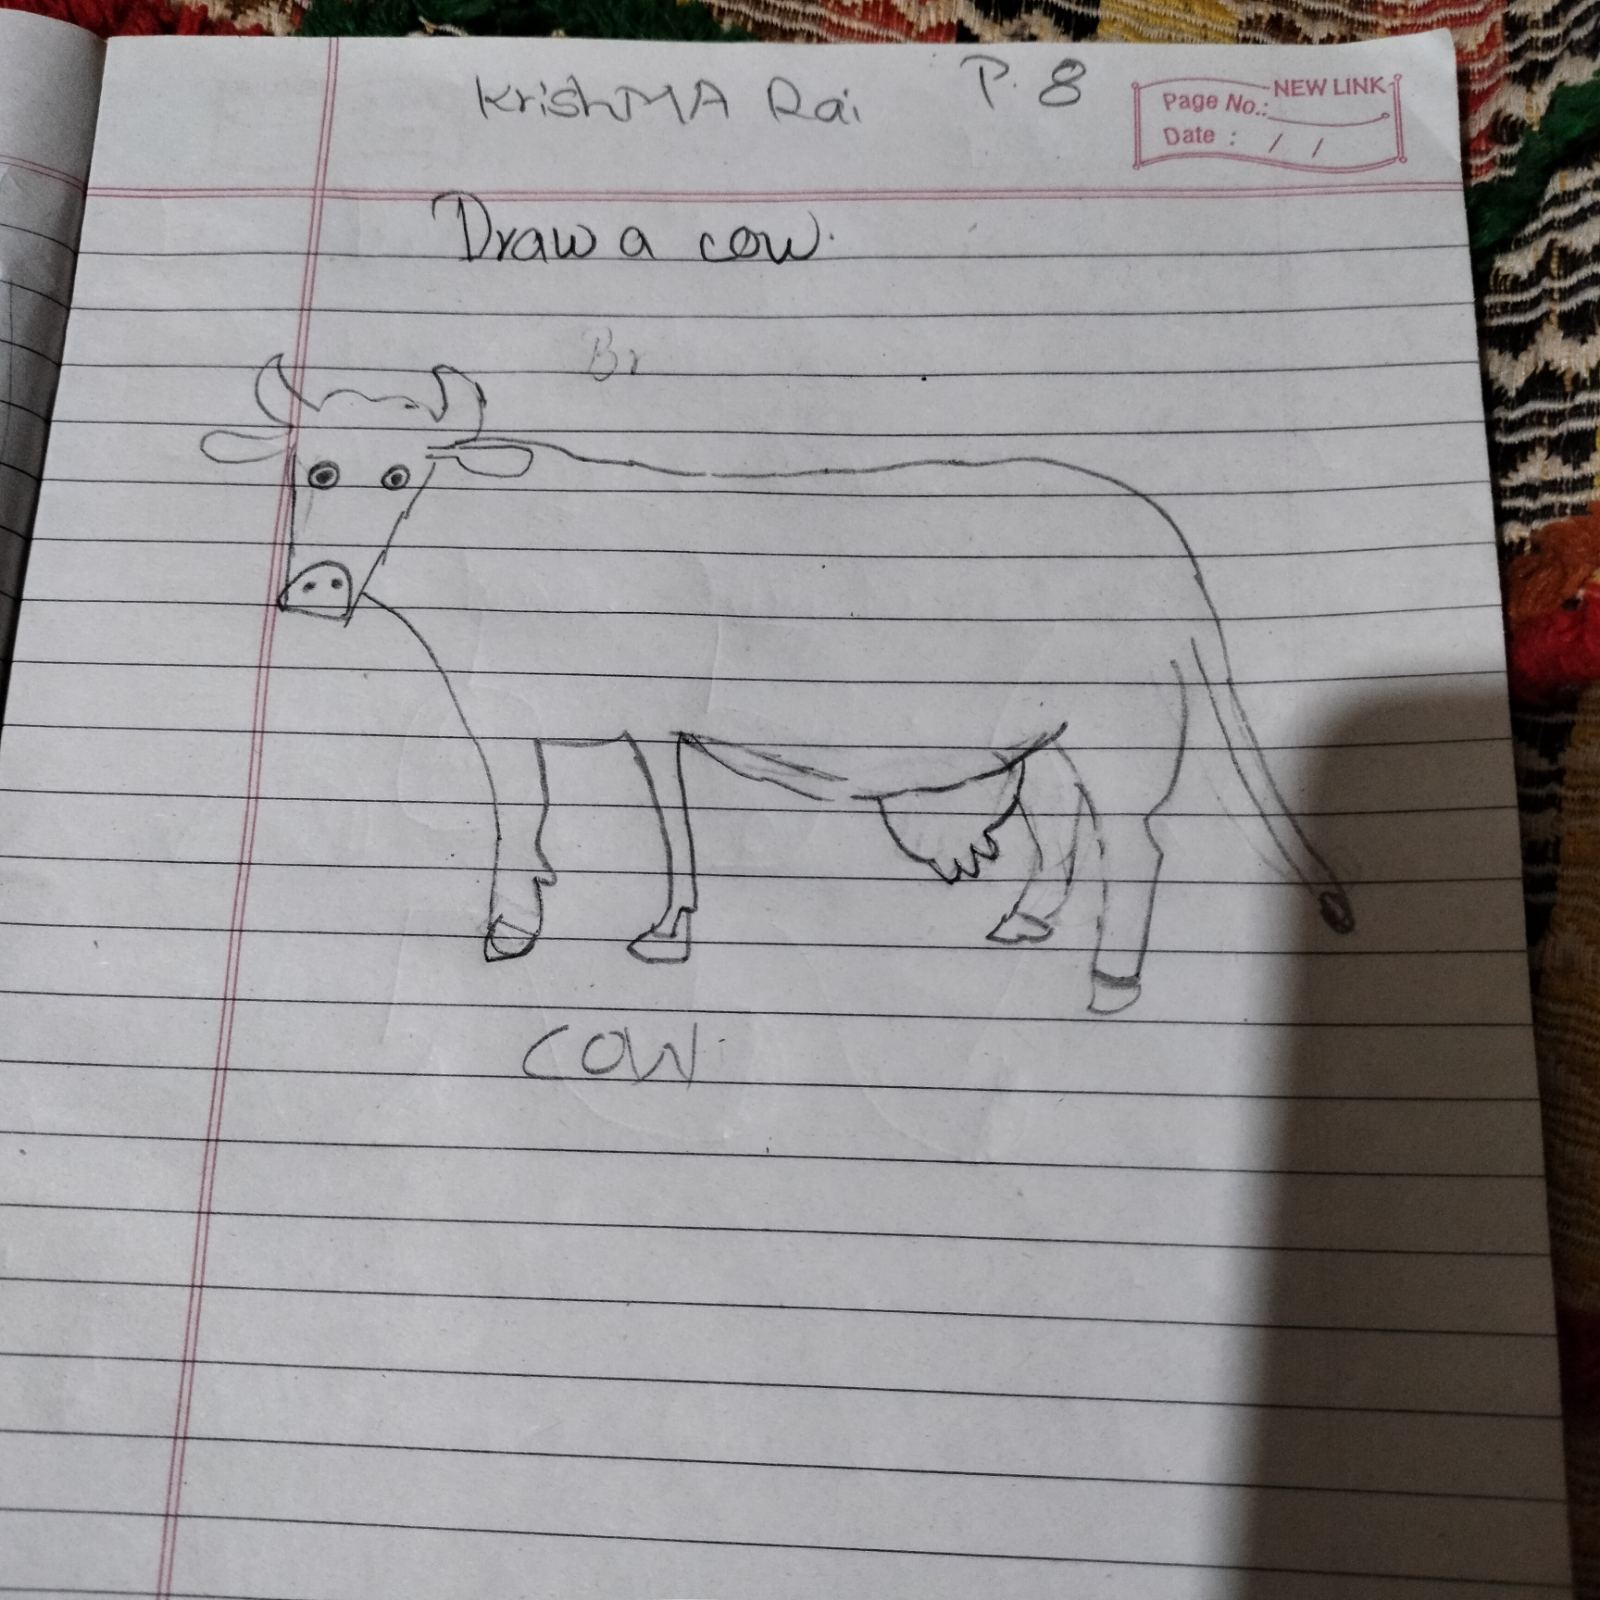 KrishMA Rai P. 8
NEW LINK
Page No.:
Date : / /
Draw a cow.
Br
COW